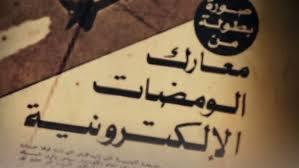 صورة
بطولة
من
معارك
الومضات
الإلكترونية